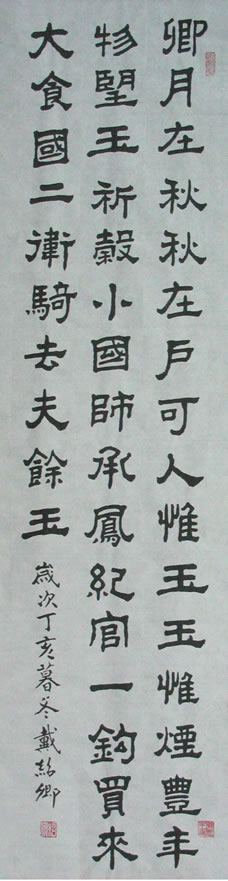 卿月在秋秋在戶可人惟玉玉惟煙豐年
物望玉祈穀小國師承鳳紀官一鈞買來
大食國二衛騎去夫餘玉
歲次丁亥暮冬戴紹卿